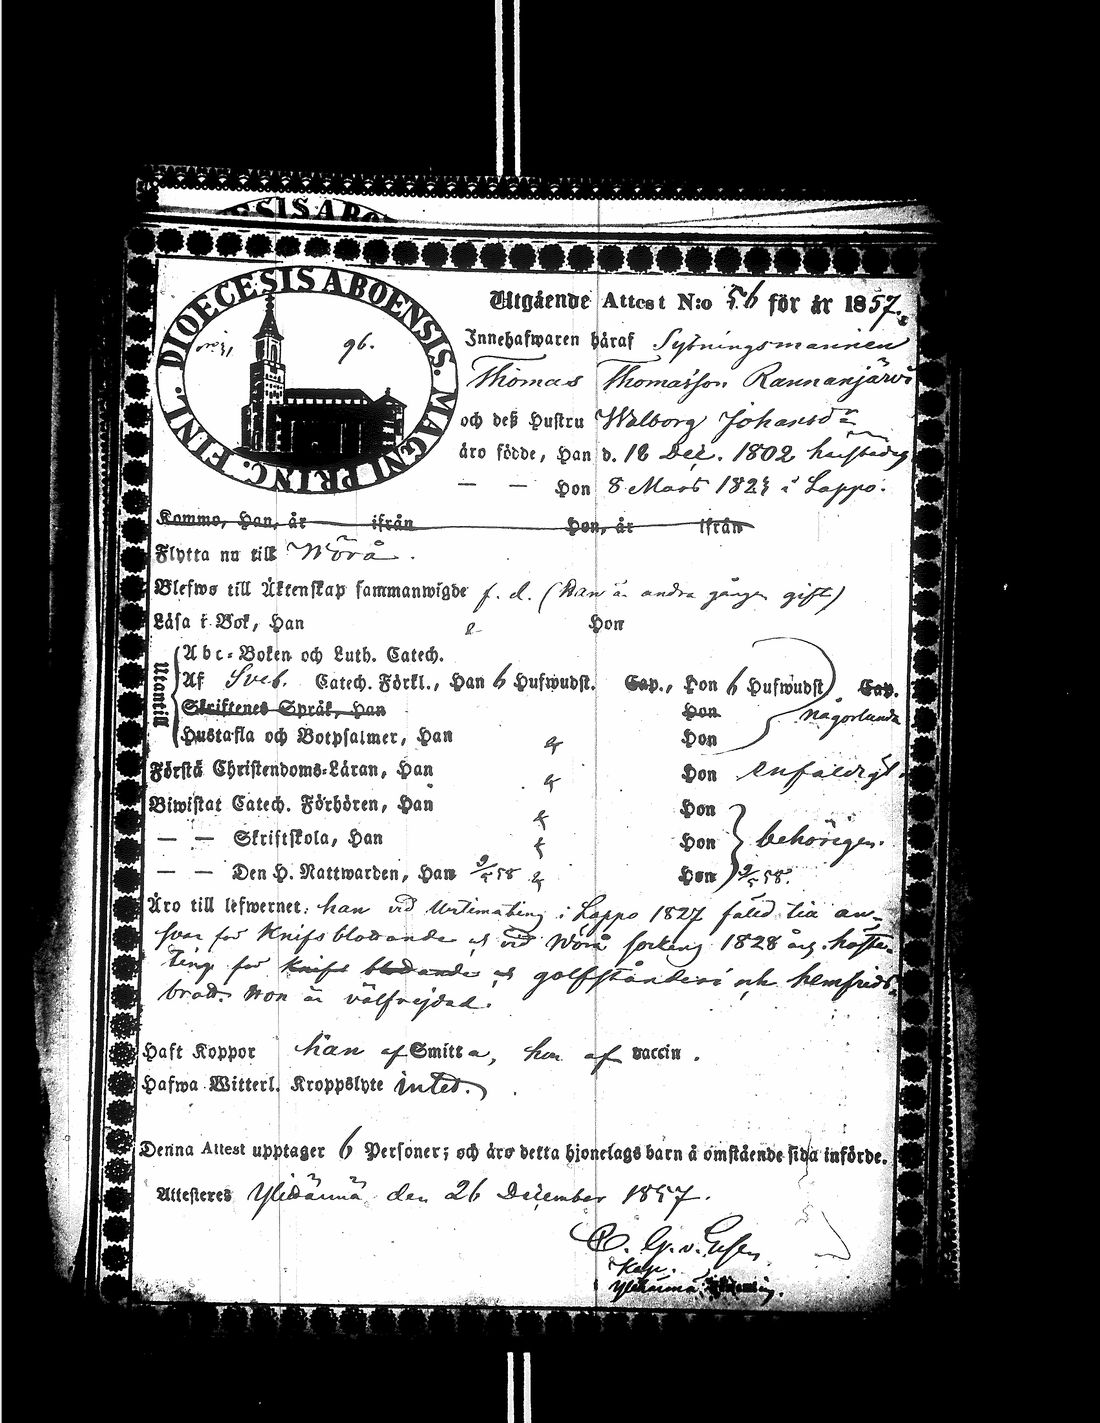 SIS ABO
DIOECESIS ABOENSIS. MAGNI PRINC. FINL.
96.
Utgående Attest N:o 56 för år 1857.
Innehafwaren häraf Sytningsmannen
Thomas Thomasson Rannanjärvi
och deß Hustru Walborg Johansdr
äro födde, Han d. 18 Dec. 1802 härstädes
— — Hon 8 Mars 1823 i Lappo.
Komme, Han, år ifrån Hon, år ifrån
Flytta nu till Wörå.
Blefwo till Äktenskap sammanwigde f. d. (han är andra gången gift)
Läsa i Bok, Han Hon
Utantill
Abc-Boken och Luth. Catech.
Af Sveb. Catech. Förkl., Han 6 Hufwudst. Cap., Hon 6 Hufwudst. Cap.
Skriftenes Språk, Han Hon någorlunda
Hustafla och Botpsalmer, Han Hon
Förstå Christendoms-Läran, Han Hon enfaldigt.
Biwistat Catech. Förhören, Han Hon
— — Skriftskola, Han Hon behörigen.
— — Den H. Nattwarden, Han Hon
Äro till lefwernet: han vid i Lappo 1827 fälld till an-
svar för Knifsblottande och vid Wörå 1828 års höste-
ting för knifs blottande och och hemfrids-
brott. Hon är välfrejdad.
Haft Koppor han af Smitta, hon af vaccin.
Hafwa Witterl. Kroppslyte intet.
Denna Attest upptager 6 Personer; och äro detta hjonelags barn å omstående sida införde.
Attesteres Ylihärmä den 26 December 1857.
G. v.
Kap.
Ylihärmä